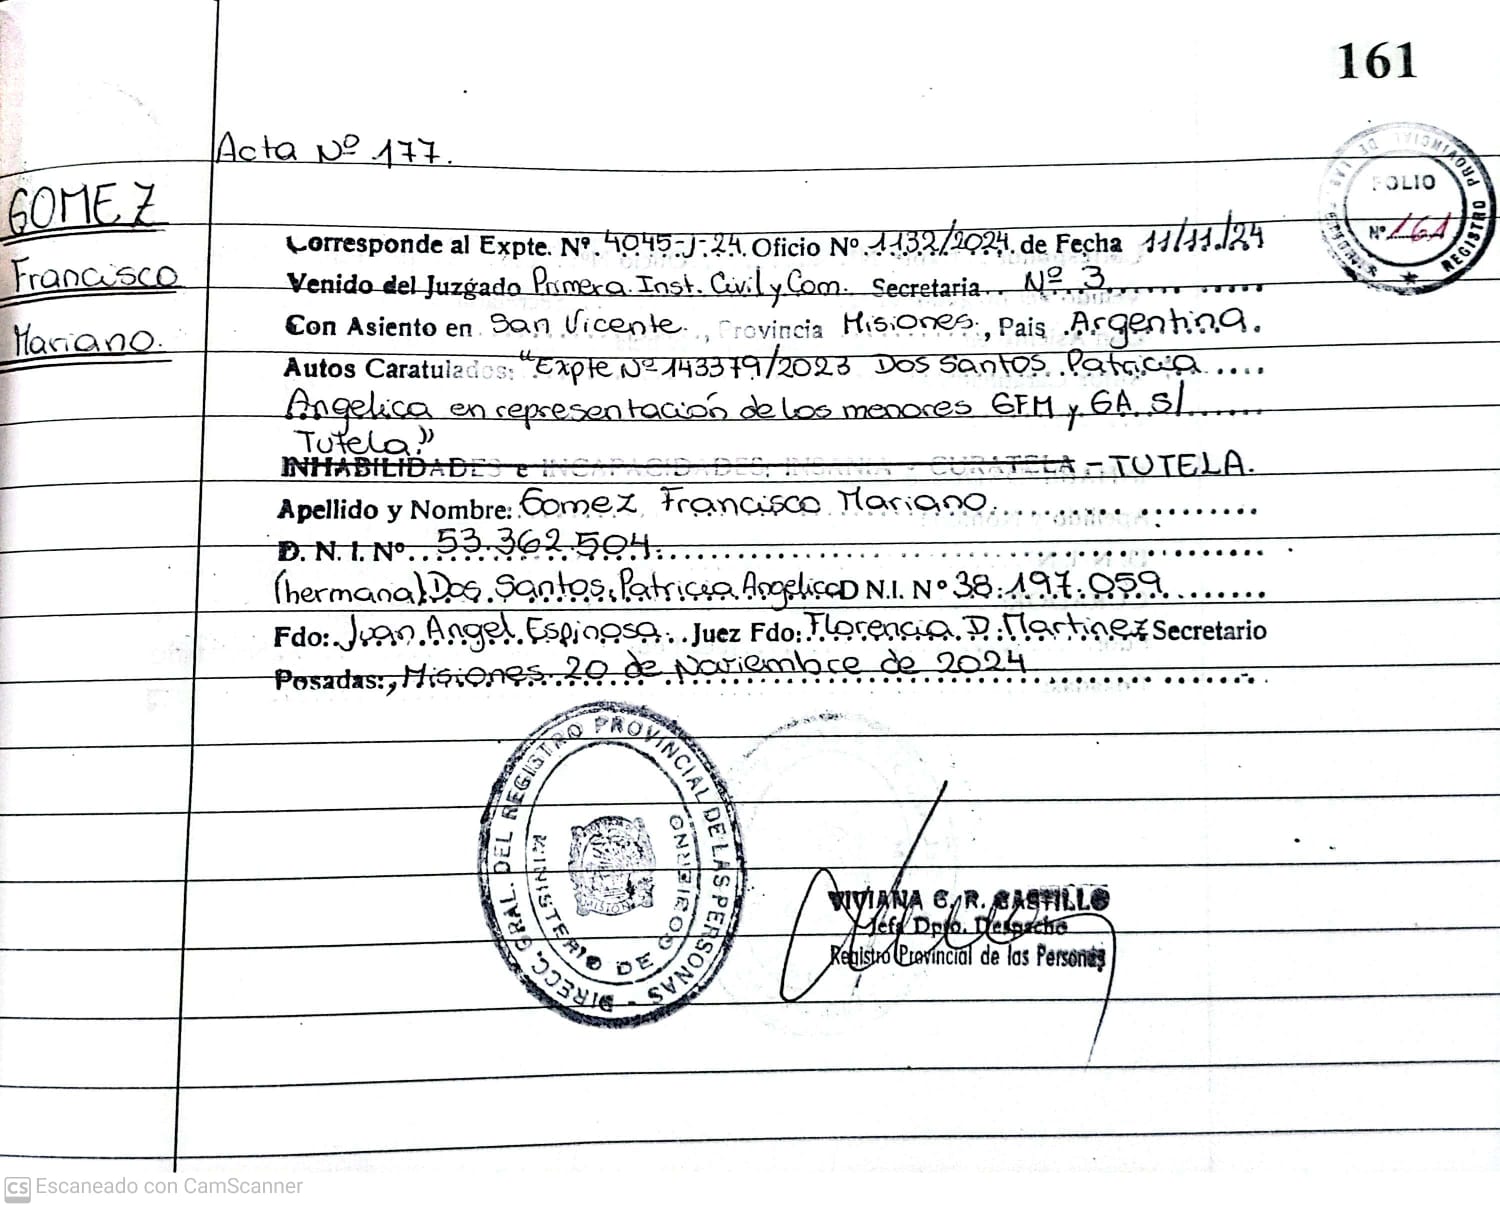 161
Acta Nº 177.
GOMEZ
Francisco
Mariano.
REGISTRO PROVINCIAL DE LAS
FOLIO
Nº 161
Corresponde al Expte. Nº. 4045-J-24. Oficio Nº 1132/2024. de Fecha 11/11/24
Venido del Juzgado Primera Inst. Civil y Com. Secretaria.. Nº 3
Con Asiento en San Vicente., Provincia Misiones., Pais Argentina.
Autos Caratulados: "Expte Nº 143379/2023 Dos Santos Patricia
Angelica en representación de los menores GFM y GA. S/
Tutela"
INHABILIDADES e INCAPACIDADES, INSANIA - CURATELA - TUTELA.
Apellido y Nombre: Gomez Francisco Mariano
D. N. I. Nº.. 53.362.504.
(hermana) Dos Santos, Patricia Angelica D N.I. Nº 38.197.059
Fdo: Juan Angel Espinosa. Juez Fdo: Florencia D. Martinez Secretario
Posadas:, Misiones 20 de Noviembre de 2024
DIRECC. GRAL. DEL REGISTRO PROVINCIAL DE LAS PERSONAS -
MINISTERIO DE GOBIERNO
MISIONES
VIVIANA G. R. CASTILLO
Jefa Dpto. Despacho
Registro Provincial de las Personas
CS Escaneado con CamScanner